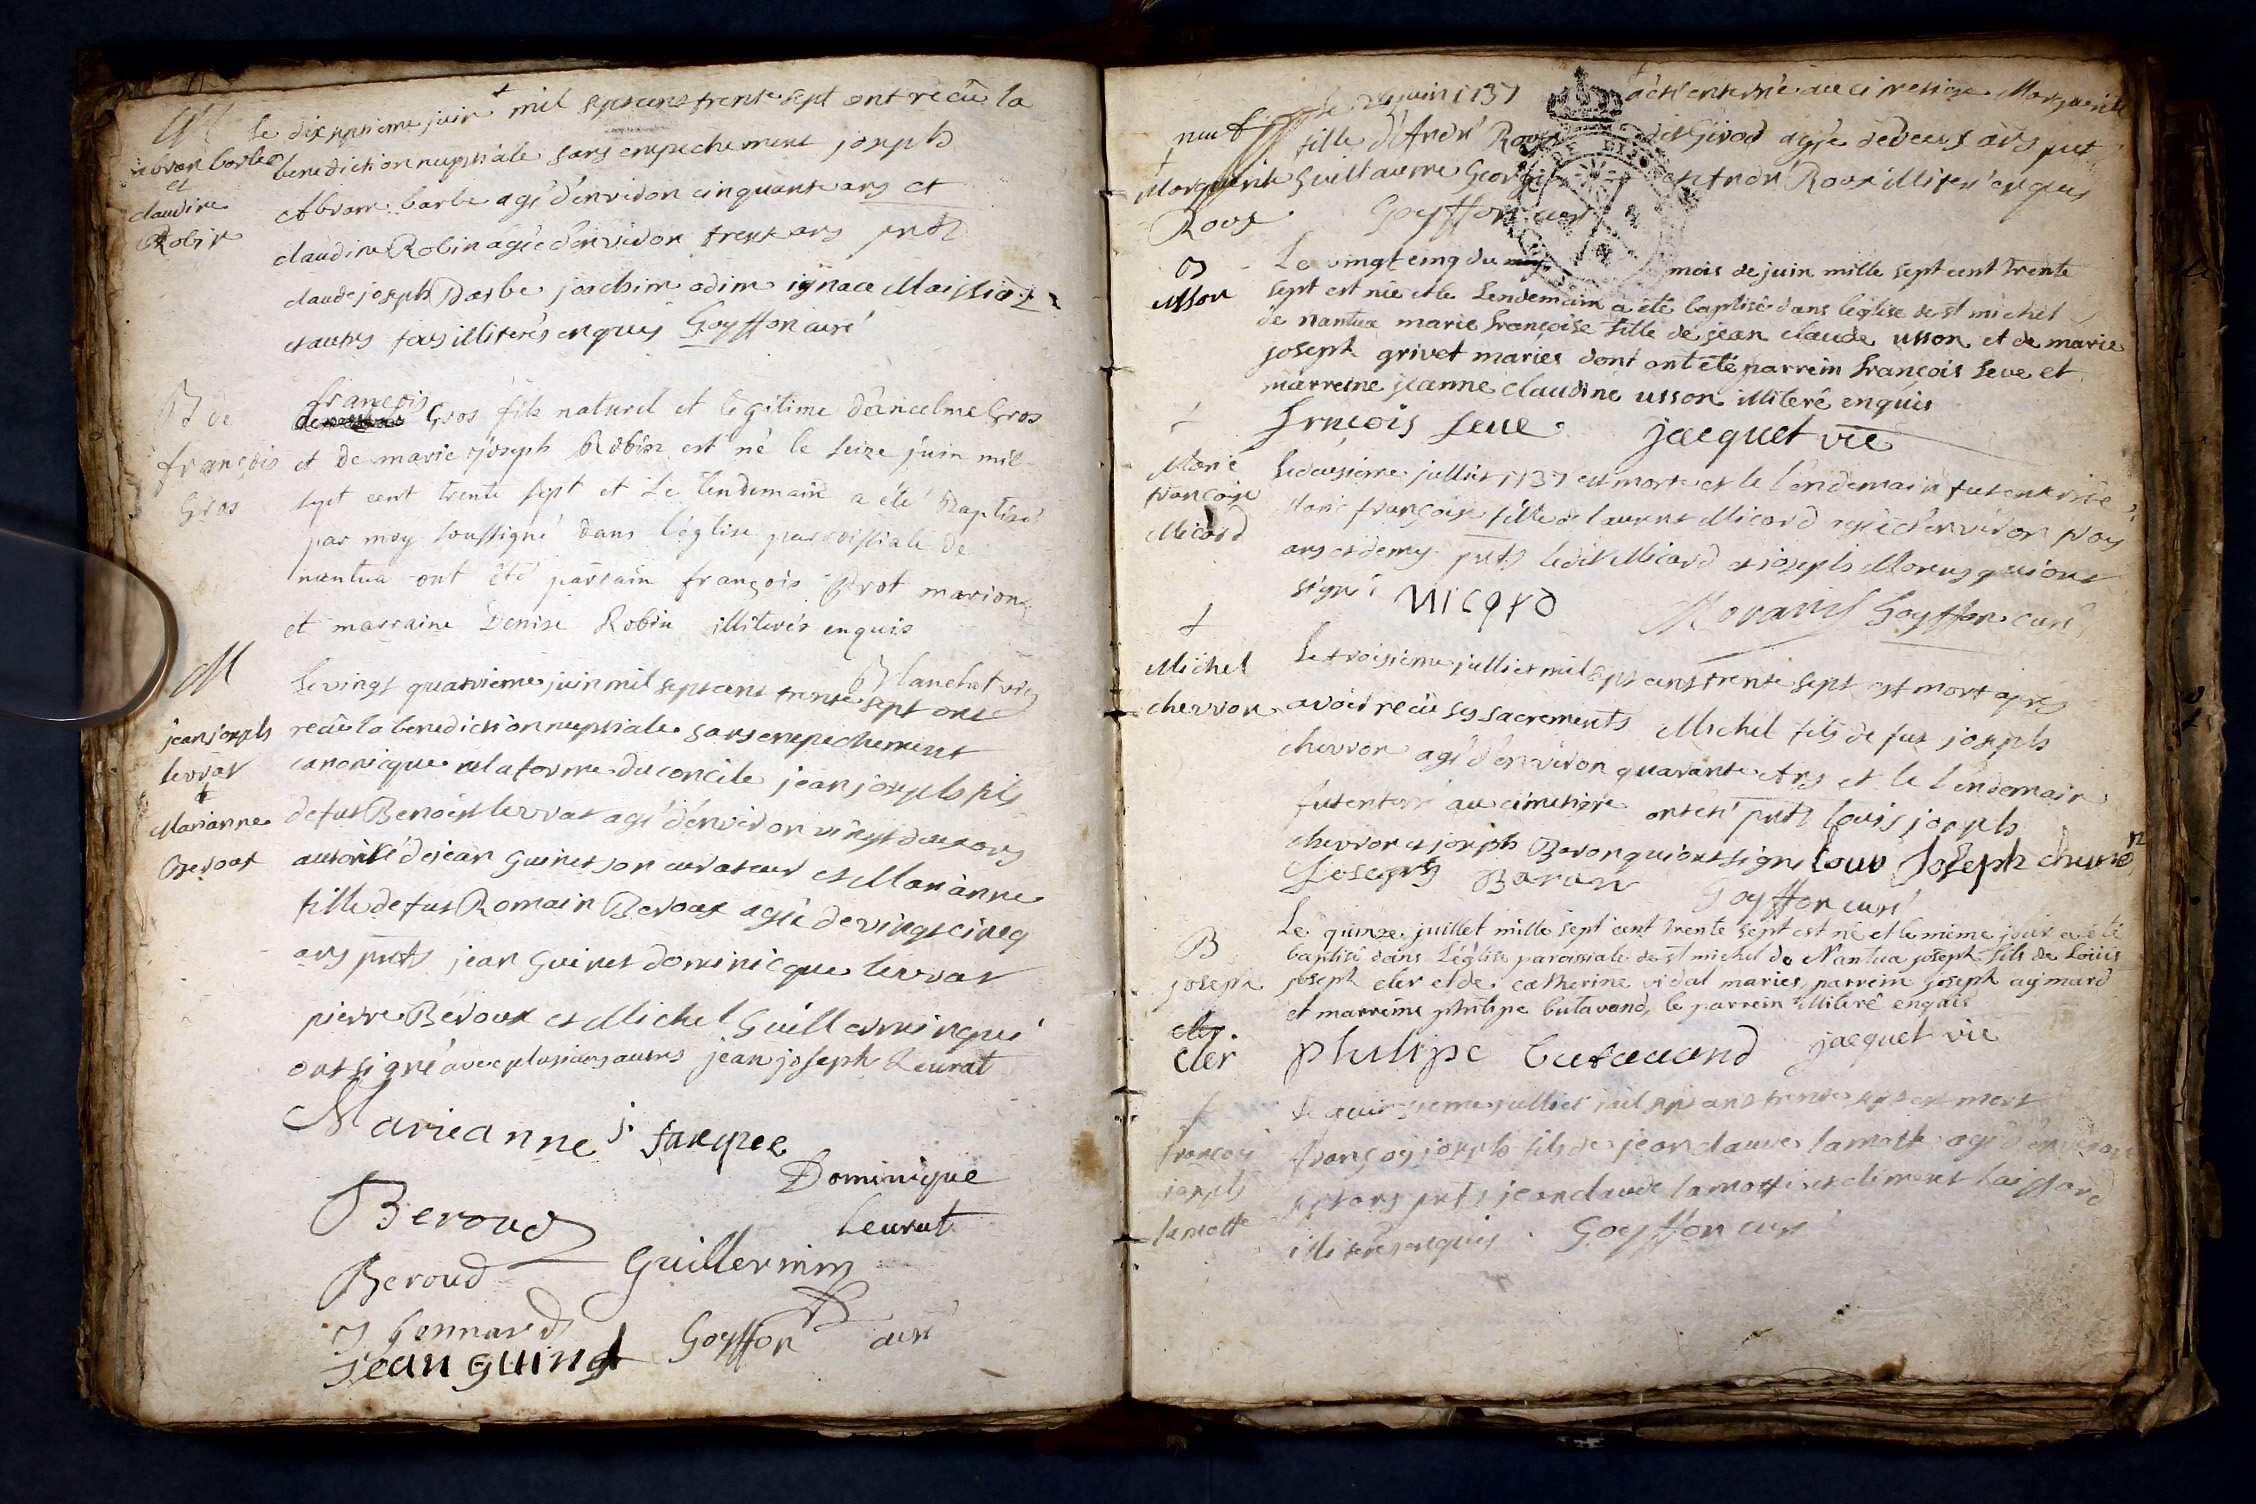 M
abram barbe
et
claudine
Robin
Le dixseptieme juin mil septcens trente sept ont recûe la
benediction nuptiale sans empechement joseph
Abram barbe agé d'environ cinquante ans et
claudine Robin agée d'environ trente ans pnts
claude joseph Barbe joachim odine ignace Maissiat
et autres tous illiterés enquis Goyffon curé
B de
françois
Gros
françois
Gros fils naturel et légitime d'ancelme Gros
et de marie joseph Robin est né le seize juin mil
sept cent trente sept et le lendemain a été Baptisé
par moy soussigné dans l'église parroissiale de
nantua ont été parrain françois Brot marion
et marraine Denise Robin illiterés enquis
Blanchet vic
M
jean joseph
levrat
et
Marianne
Beroux
Le vingt quatrieme juin mil septcens trente sept ont
recûe la benediction nuptiale sans empechement
canonique en la forme du concile jean joseph fils
de fut Benoist levrat agé d'environ vingt deux ans
autorisé de jean Guinet son curateur et Marianne
fille de fut Romain Beroux agée de vingt cinq
ans pnts jean Guinet dominicque levrat
pierre Beroux et Michel Guillermin qui
ont signé avec plusieurs autres jean joseph Leurat
Marieanne j. Jacquee
Dominique
Beroud
Leurat
Beroud Guillermin
J Gennard
Goyffon curé
jean guinet
Marguerite
Roux
Le 24 juin 1737 a été enterrée au cimetiere Marguerite
fille d'André Roux dit Girod agée de deux ans pnt
Guillaume George et André Roux illiterés enquis
Goyffon curé
B
usson
Le vingt cinq du mois de juin mille sept cent trente
sept est née et le lendemain a été baptisée dans l'église de st michel
de nantua marie françoise fille de jean claude usson et de marie
joseph grivet mariés dont ont été parrein françois seve et
marreine jeanne claudine usson illiteré enquis
frnçois seve jacquet vic
†
Marie
françoise
Micard
Le deuxieme julliet 1737 est morte et le lendemain fut enterrée
Marie françoise fille de laurent Micard agée d'environ troy
ans et demy pnts ledit Micard et joseph Morus qui ont
signé MICARD Goyffon curé
†
Michel
chevron
Le troisieme julliet mil sept cens trente sept est mort apres
avoir recûe ses sacrements Michel fils de fut joseph
chevron agé d'environ quarante ans et le lendemain
fut enterré au cimetiere ont été pnts louis joseph
chevron et joseph Baron qui ont signé Louis Joseph chevron
Joseph Baron Goyffon curé
B
joseph
cler
Le quinze juillet mille sept cent trente sept est né et le même jour a été
baptisé dans l'église paroissiale de st michel de Nantua joseph fils de Loüis
joseph cler et de catherine vidal mariés, parrein joseph aymard
et marreine philipe butavand, le parrein illiteré enquis
philipe butavand jacquet vic
†
françois
joseph
lamotte
julliet mil sept cens trente sept est mort
françois joseph fils de jean claude lamotte agé d'environ
sept ans pnts jean claude lamotte et climent
illiterés enquis. Goyffon curé